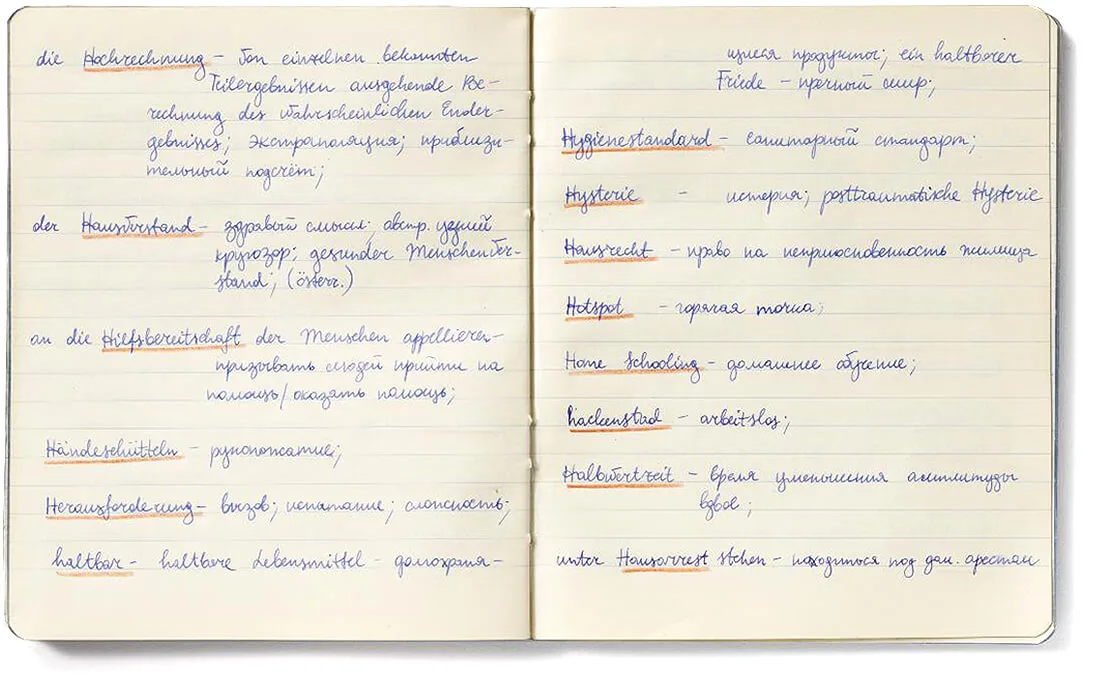 die Hochrechnung – Von einzelnen bekannten
Teilergebnissen ausgehende Be-
rechnung des wahrscheinlichen Ender-
gebnisses; экстраполяция; приблизи-
тельный подсчёт;
der Hausverstand – здравый смысл; австр. узкий
кругозор; gesunder Menschenver-
stand; (österr.)
an die Hilfsbereitschaft der Menschen appellieren –
призывать людей прийти на
помощь/оказать помощь;
Händeschütteln – рукопожатие;
Herausforderung – вызов; испытание; сложность;
haltbar – haltbare Lebensmittel – долгохраня-
щиеся продукты; ein haltbarer
Friede – прочный мир;
Hygienestandard – санитарный стандарт;
Hysterie – истерия; posttraumatische Hysterie
Hausrecht – право на неприкосновенность жилища
Hotspot – горячая точка;
Home Schooling – домашнее обучение;
hackenstad – arbeitslos;
Halbwertzeit – время уменьшения амплитуды
вдвое;
unter Hausarrest stehen – находиться под дом. арестом